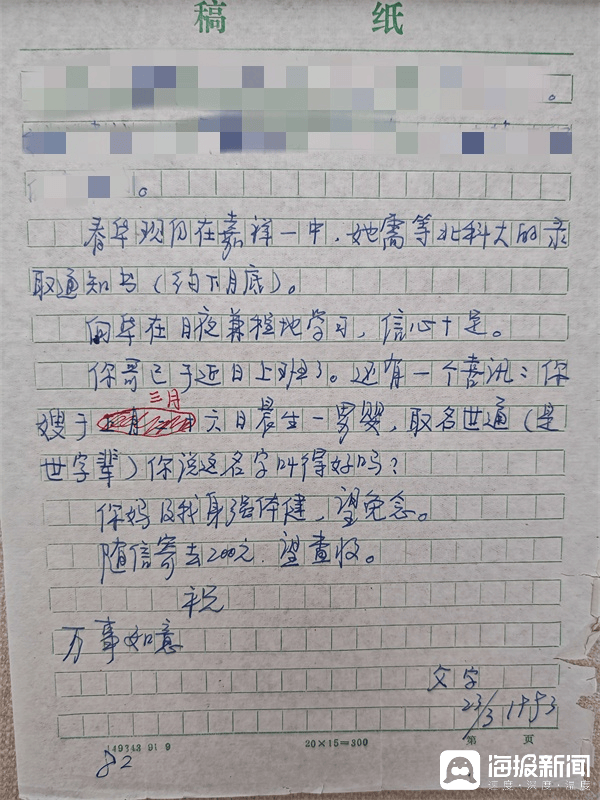 稿 纸
春华现仍在嘉祥一中,她需等北科大的录
取通知书(约下月底)。
向华在日夜兼程地学习,信心十足。
你哥已于近日上班了。还有一个喜讯:你
三月
嫂于六日晨生一男婴,取名世通(是
世字辈)你说这名字叫得好吗?
你妈及我身强体健,望免念。
随信寄去200元.望查收。
祝
万事如意
文字
23/3
49343 91 9 20×15=300 第 页
82
海报新闻
深度·深度·温度